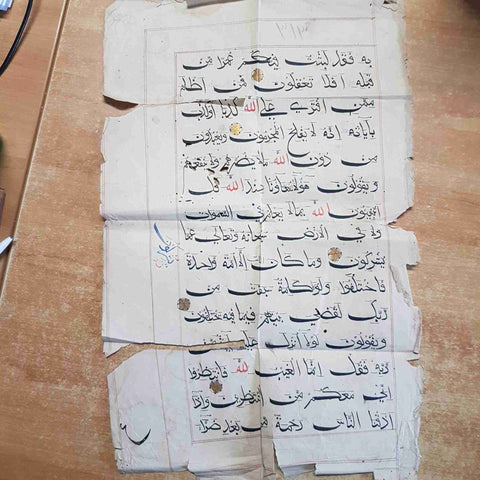 ٣١٣
به فقد لبثت فيكم عمرا من
قبله افلا تعقلون فمن اظلم
ممن افترى على الله كذبا او كذب
باياته انه لا يفلح المجرمون ويعبدون
من دون الله ما لا يضرهم ولا ينفعهم
ويقولون هؤلاء شفعاونا عند الله قل
اتنبئون الله بما لا يعلم في السموات
ولا في الارض سبحانه وتعالى عما
يشركون وما كان الا امة واحدة
فاختلفوا ولولا كلمة سبقت من
ربك لقضي بينهم فيما فيه يختلفون
ويقولون لولا انزل عليه
ربه فقل انما الغيب لله فانتظروا
اني معكم من المنتظرين واذا
اذقنا الناس رحمة من بعد ضراء